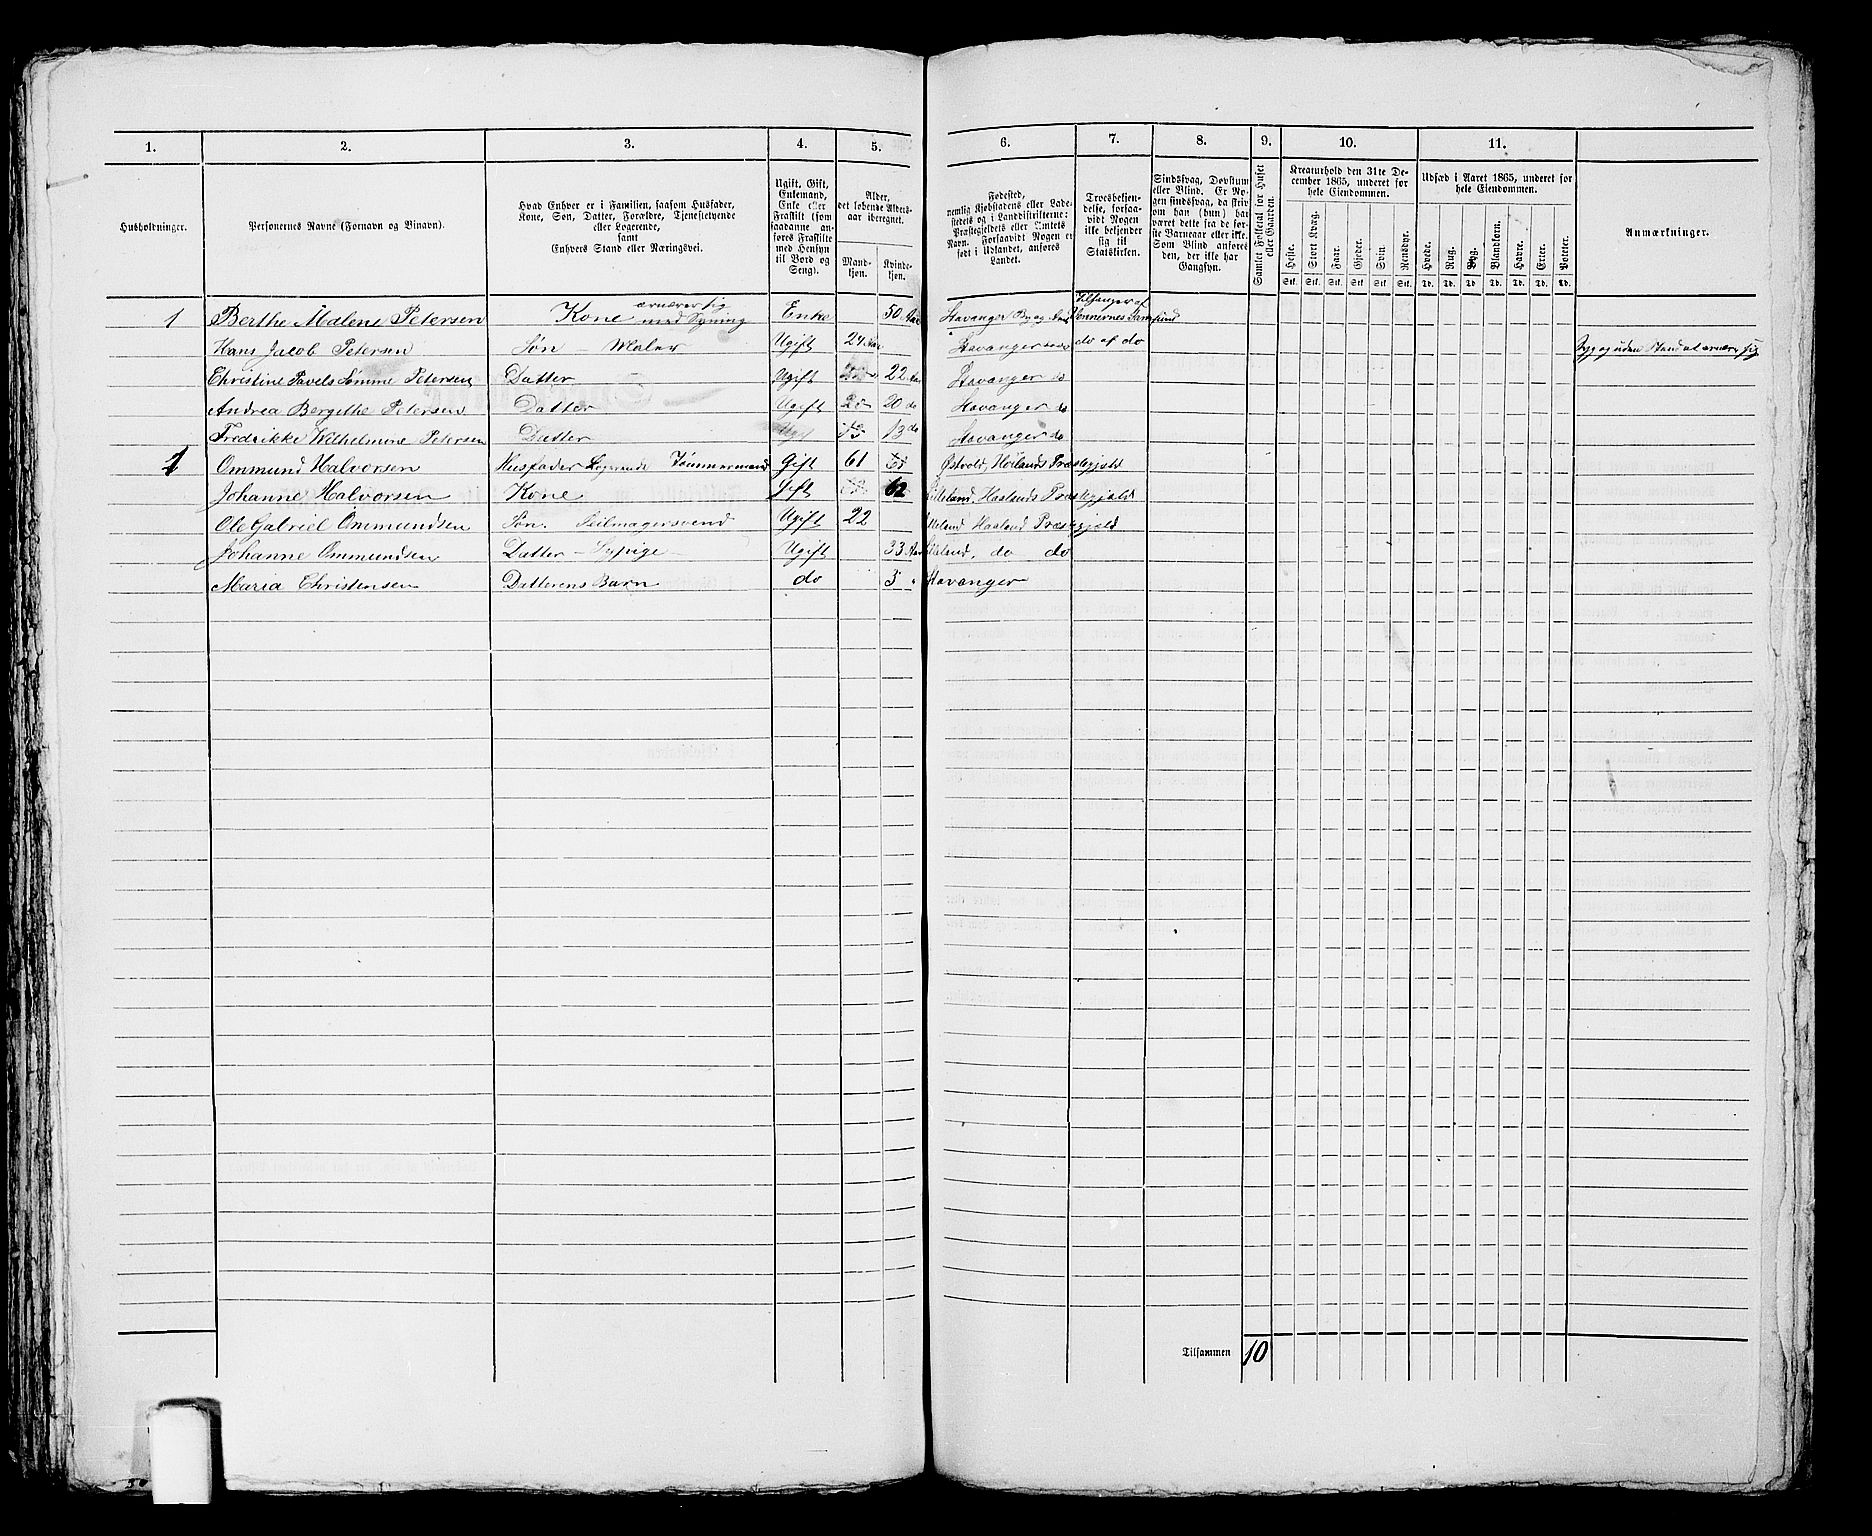 1. 2. 3. 4. 5. 6. 7. 8. 9. 10. 11.
Husholdninger.
Personernes Navne (Fornavn og Binavn).
Hvad Enhver er i Familien, saasom Husfader,
Kone, Søn, Datter, Forældre, Tjenestetyende
eller Logerende,
samt
Enhvers Stand eller Næringsvei.
Ugift, Gift,
Enkemand,
Enke eller
Fraskilt (som
saadanne an-
føres Fraskilte
med Hensyn
til Bord og
Seng).
Alder,
det løbende Alders-
aar iberegnet.
Mand-
kjøn.
Kvinde-
kjøn.
Fødested,
nemlig Kjøbstadens eller Lade-
stedets og i Landdistrikterne:
Præstegjeldets eller Amtets
Navn. Forsaavidt Nogen er
født i Udlandet, anføres
Landet.
Troesbekjen-
delse, forsaa-
vidt Nogen
ikke bekjender
sig til
Statskirken.
Sindssvag, Døvstum
eller Blind. Er No-
gen sindssvag, da skriv
om han (hun) har
været dette fra de før-
ste Barneaar eller ikke.
Som Blind anføres
den, der ikke har
Gangsyn.
Samlet Folketal for Huset
eller Gaarden.
Kreaturhold den 31te De-
cember 1865, underet for
hele Eiendommen.
Heste. Stort Kvæg. Faar. Gjeder. Svin. Rensdyr.
Stk. Stk. Stk. Stk. Stk. Stk.
Udsæd i Aaret 1865, underet for
hele Eiendommen.
Hvede. Rug. Byg. Blandkorn. Havre. Erter. Poteter.
Td. Td. Td. Td. Td. Td. Td.
Anmærkninger.
1 Berthe Malene Petersen Kone ernærer sig med Syning Enke 50 Aar Stavanger By Tilhænger af Vennernes Samfund
Hans Jacob Petersen Søn – Maler Ugift 24 Aar Stavanger do af do Syg og uden Stand at ernære sig
Christine Pavels Sømme Petersen Datter Ugift 22 Aar Stavanger do
Andrea Bergithe Petersen Datter Ugift 20 do Stavanger do
Fredrikke Wilhelmine Petersen Datter Ugift 13 do Stavanger do
1 Ommund Halvorsen Husfader Logerende Tømmermand Gift 61 Østvold, Høilands Præstegjeld
Johanne Halvorsen Kone Gift 62 Haalands Præstegjeld
Ole Gabriel Ommundsen Søn. Seilmagersvend Ugift 22 Haaland Præstegjeld
Johanne Ommundsen Datter – Sypige Ugift 33 Aar do do
Maria Christensen Datterens Barn do 3 " Stavanger
Tilsammen 10